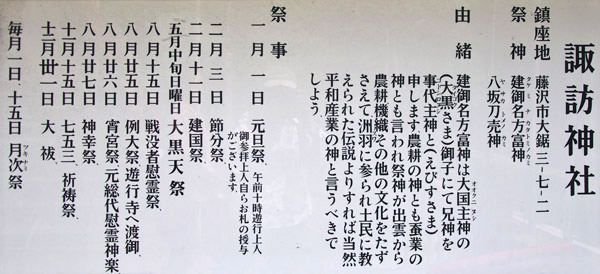 諏訪神社
鎮座地 藤沢市大鋸三-七-二
祭神 建御名方富神
タケミナカタトミノカミ
八坂刀売神
ヤサカトメノカミ
由緒 建御名方富神は大国主神の
オオクニヌシ
(大黒さま)御子にて兄神を
事代主神と(えびすさま)
申します農耕の神とも蚕業の
神とも言われ祭神が出雲から
農耕機織その他の文化をたず
さえて洲羽に参られ土民に教
えられた伝説よりすれば当然
平和産業の神と言うべきで
しょう
祭事
一月一日 元旦祭、午前十時遊行上人
御参拝上人自らお札の授与
がございます。
二月三日 節分祭、
二月十一日 建国祭、
五月中旬日曜日 大黒天祭
八月十五日 戦没者慰霊祭、
八月廿五日 例大祭遊行寺へ渡御、
八月廿六日 宵宮祭、元総代慰霊神楽
八月廿七日 神幸祭、
十月十五日 七五三、祈祷祭、
十二月卅一日 大祓、
毎月一日、十五日 月次祭
ツキナミ